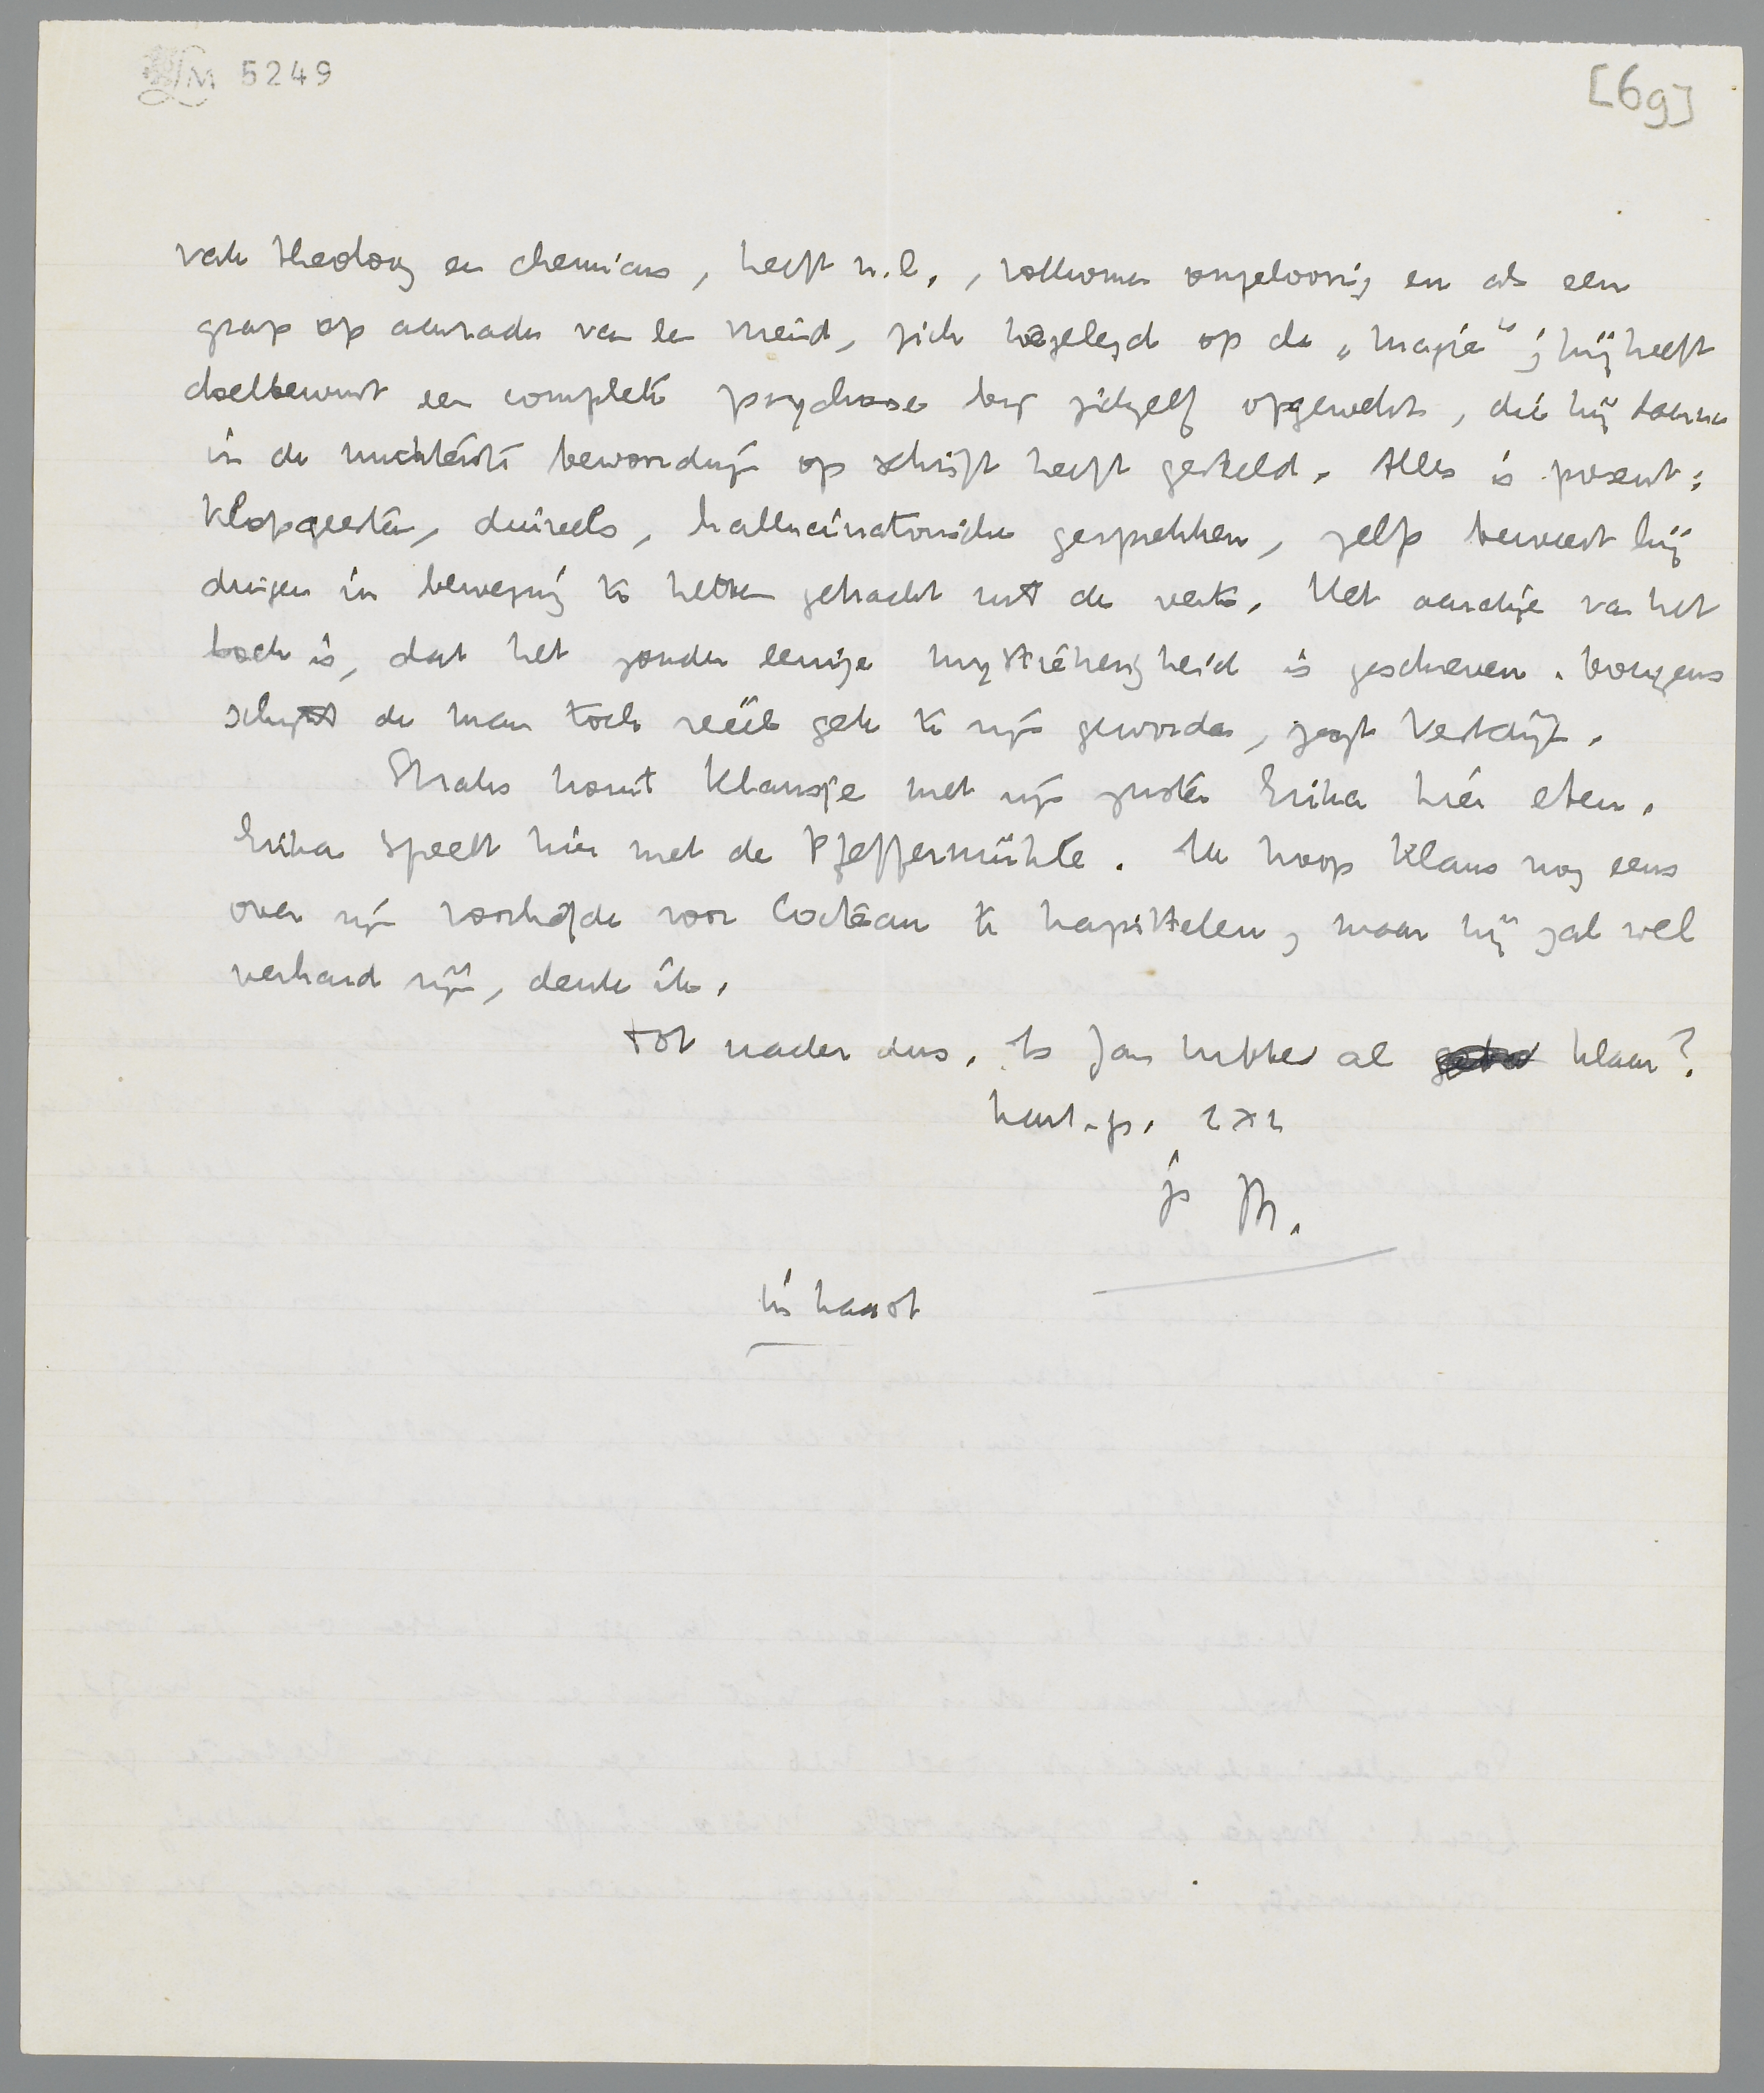 LM 5249
[6g]
vak theoloog en chemicus, heeft n.l., volkomen ongeloovig en als een
grap op aanraden van een vriend, zich toegelegd op de „magie"; hij heeft
doelbewust een complete psychose bij zichzelf opgewekt, die hij daarna
in de nuchterste bewoordingen op schrift heeft gesteld. Alles is present:
klopgeesten, duivels, hallucinatorische gesprekken, zelfs beweert hij
dingen in beweging te hebben gebracht uit de verte. Het aardige van het
boek is, dat het zonder eenige mystiekerigheid is geschreven. Overigens
schijnt de man toch reëel gek te zijn geworden, zegt Vestdijk.
Straks komt Klausje met zijn zuster Erika hier eten.
Erika speelt hier met de Pfeffermühle. Ik hoop Klaus nog eens
over zijn voorliefde voor Cocteau te kapittelen, maar hij zal wel
verhard zijn, denk ik.
Tot nader dus. Is Jan Lubbes al klaar?
hart. gr. 2 x 2
je M.
in haast